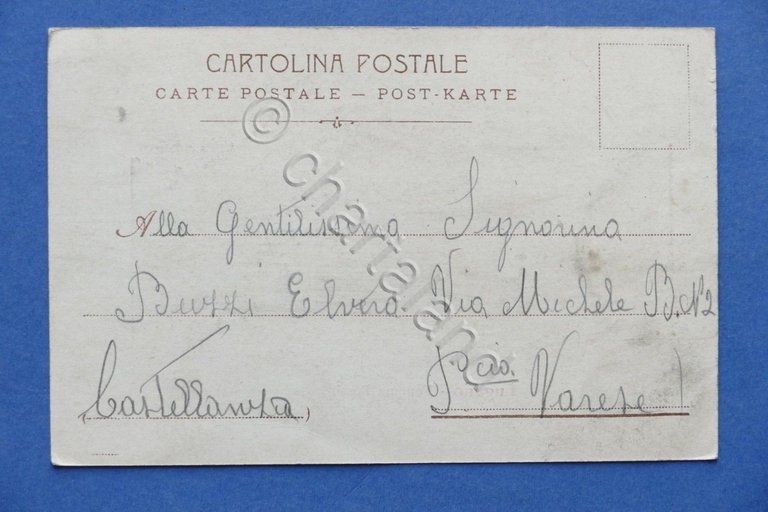 CARTOLINA POSTALE
CARTE POSTALE — POST-KARTE
Alla Gentilissima Signorina
Buzzi Elvira Via Michele B. N2
(Castellanza) Pcia. Varese
© chartaland